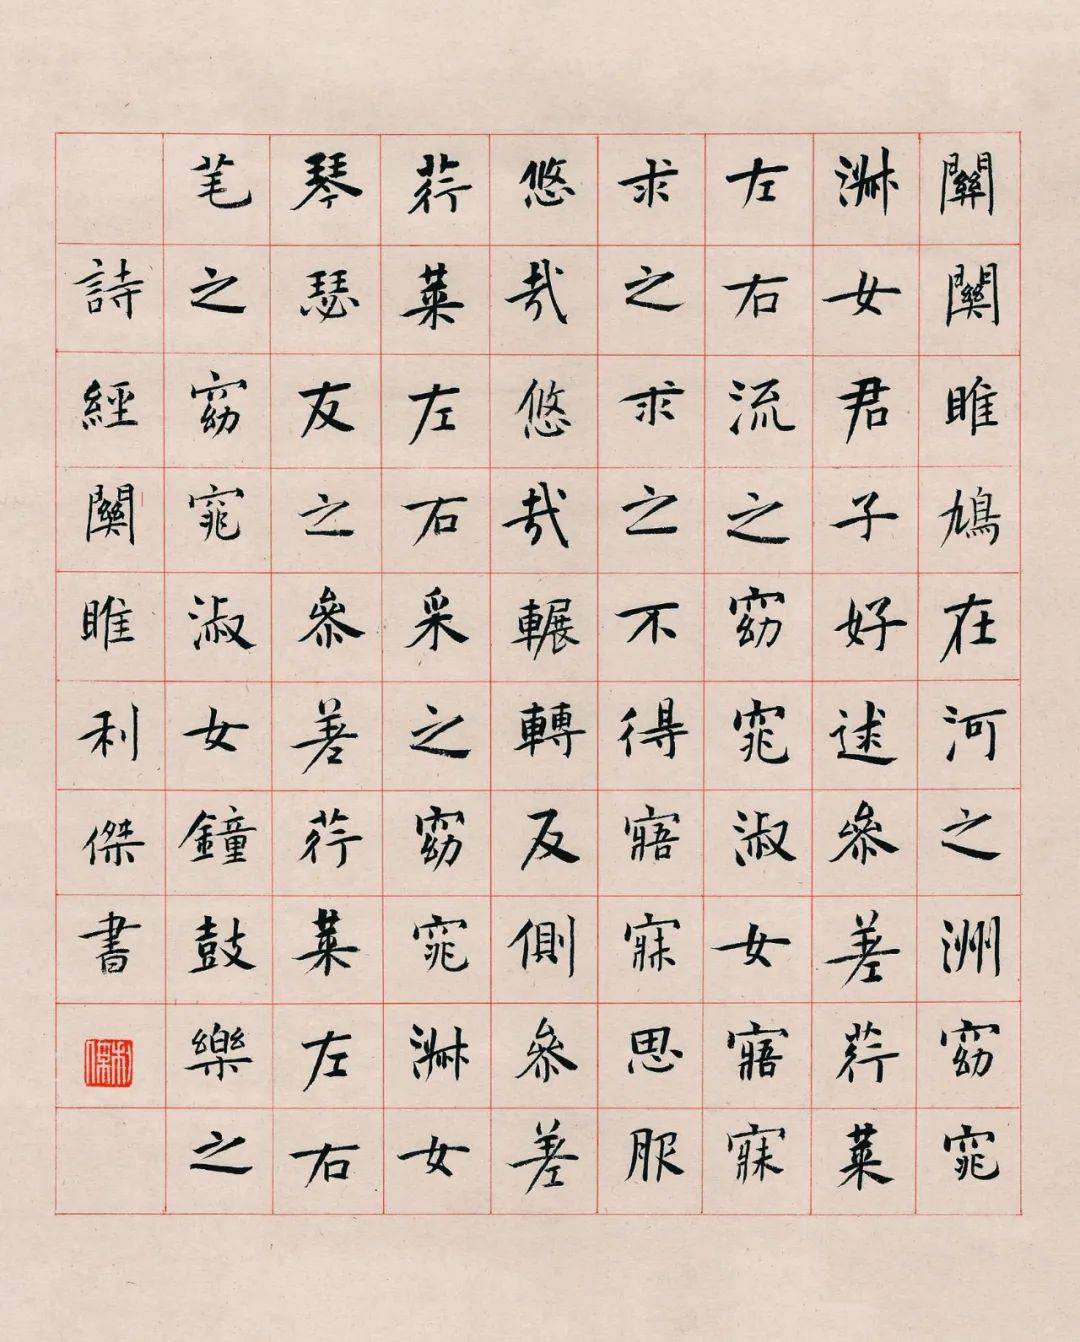 關關雎鳩在河之洲窈窕
淋女君子好逑參差荇菜
左右流之窈窕淑女寤寐
求之求之不得寤寐思服
悠哉悠哉輾轉反側參差
荇菜左右采之窈窕淋女
琴瑟友之參差荇菜左右
芼之窈窕淑女鐘鼓樂之
詩經關雎利傑書
利傑